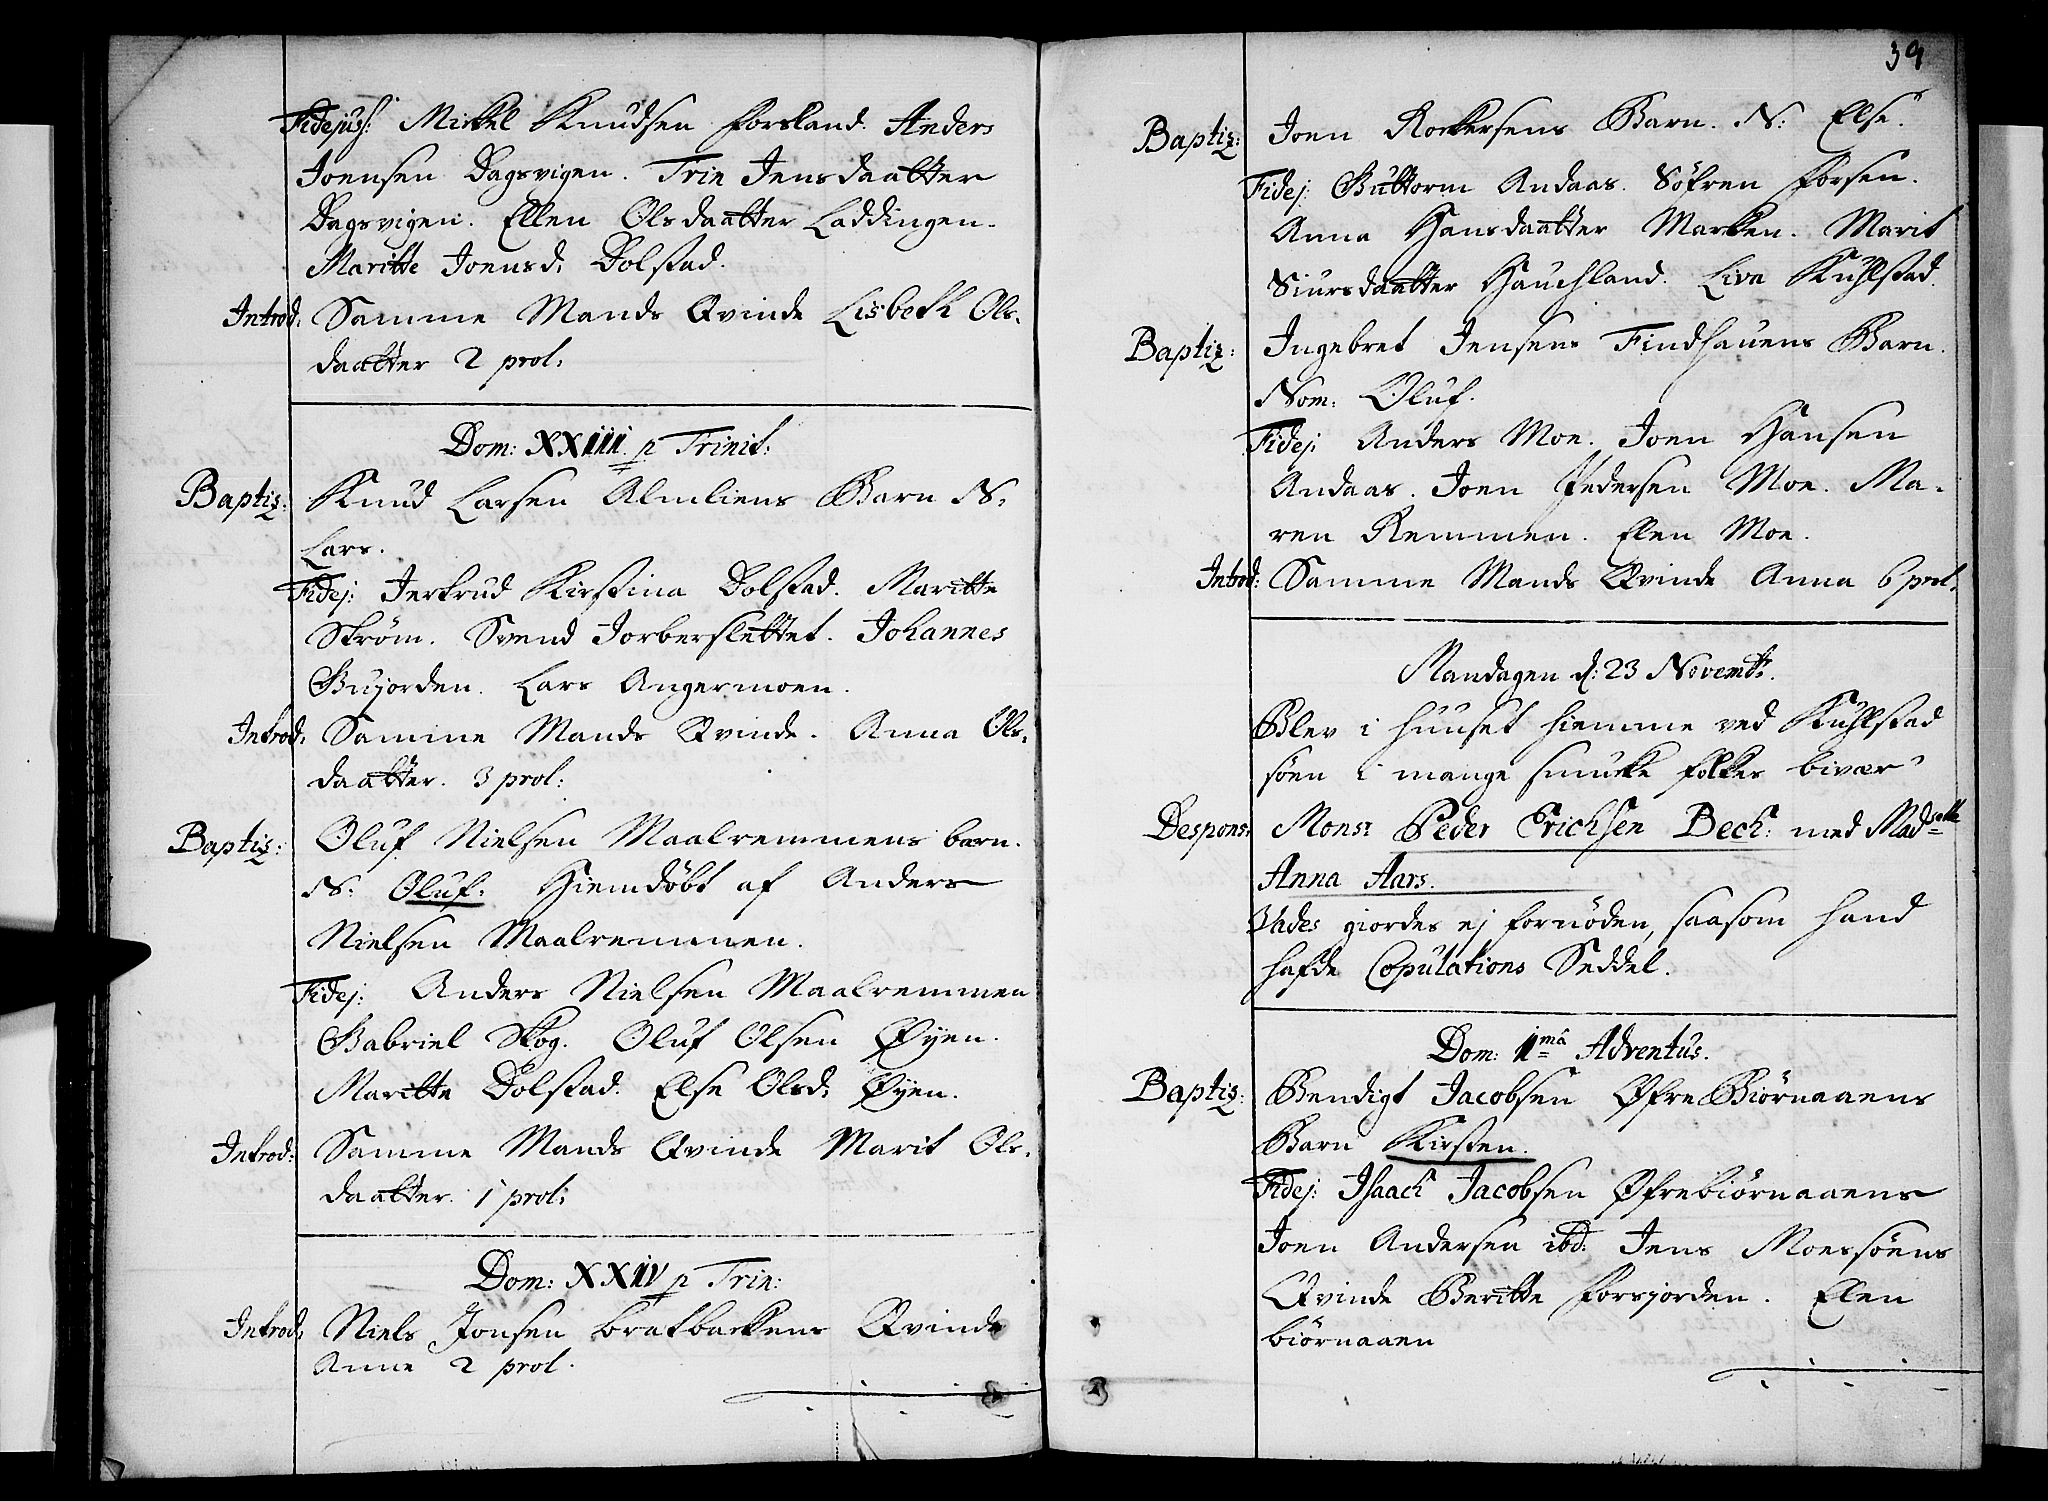 Fidejuss: Mickel Knudsen Forsland. Anders
Joensen Dagsvigen. Trin Jensdaatter
Dagsvigen. Ellen Olsdaatter Laddingen.
Maritte Joensd: Dolstad.
Introd: Samme Mands Qvinde Lisbeth Ols-
daatter 2 prol:
Dom: XXIII. p Trinit:
Baptiz: Knud Larsen Almliens Barn N:
Lars.
Fidej: Jertrud Kirstina Dolstad. Maritte
Strøm. Svend Jorberslettet. Johannes
Bujorden. Lars Angermoen.
Introd: Samme Mands Qvinde. Anna Ols-
daatter. 3 prol:
Baptiz: Oluf Nielsen Maalremmens barn.
N: Oluf: Hiemdøbt af Anders
Nielsen Maalremmen.
Fidej: Anders Nielsen Maalremmen
Gabriel Skog. Oluf Olsen Øyen.
Maritte Dolstad. Else Olsd: Øyen.
Introd: Samme Mands Qvinde Marit Ols-
daatter. 1 prol:
Dom: XXIV p Trin:
Introd: Niels Jonsen bratbackens Qvinde
Anne 2 prol.
39
Baptiz: Joen Rockersens Barn. N: Else.
Fidej: Guttorm Andaas. Søfren Forsen.
Anna Hansdaatter Marken. Marit
Siursdaatter Hauchland. Live Kuhlstad.
Baptiz: Ingebret Jensens Findhauens Barn.
Nom: Oluf.
Fidej: Anders Moe. Joen Hansen
Andaas. Joen Pedersen Moe. Ma-
ren Remmen. Elen Moe.
Introd: Samme Mands Qvinde Anna 6 prol.
Mandagen d: 23 Novembr.
Blev i Huuset hiemme ved Kuhlstad
søen i mange smucke folkes bivær
Despons: Monsr Peder Erichsen Bech: med Madselle
Anna Aars.
Vades giordes ej fornøden, saasom hand
hafde Copulations Seddel.
Dom: 1mâ Adventus.
Baptiz: Bendigt Jacobsen Øfre Biørnaaens
Barn Kirsten.
Fidej: Isaach Jacobsen Øfrebiørnaaens
Joen Andersen ibd: Jens Moessøens
Qvinde Beritte Forsjorden. Elen
biørnaaen